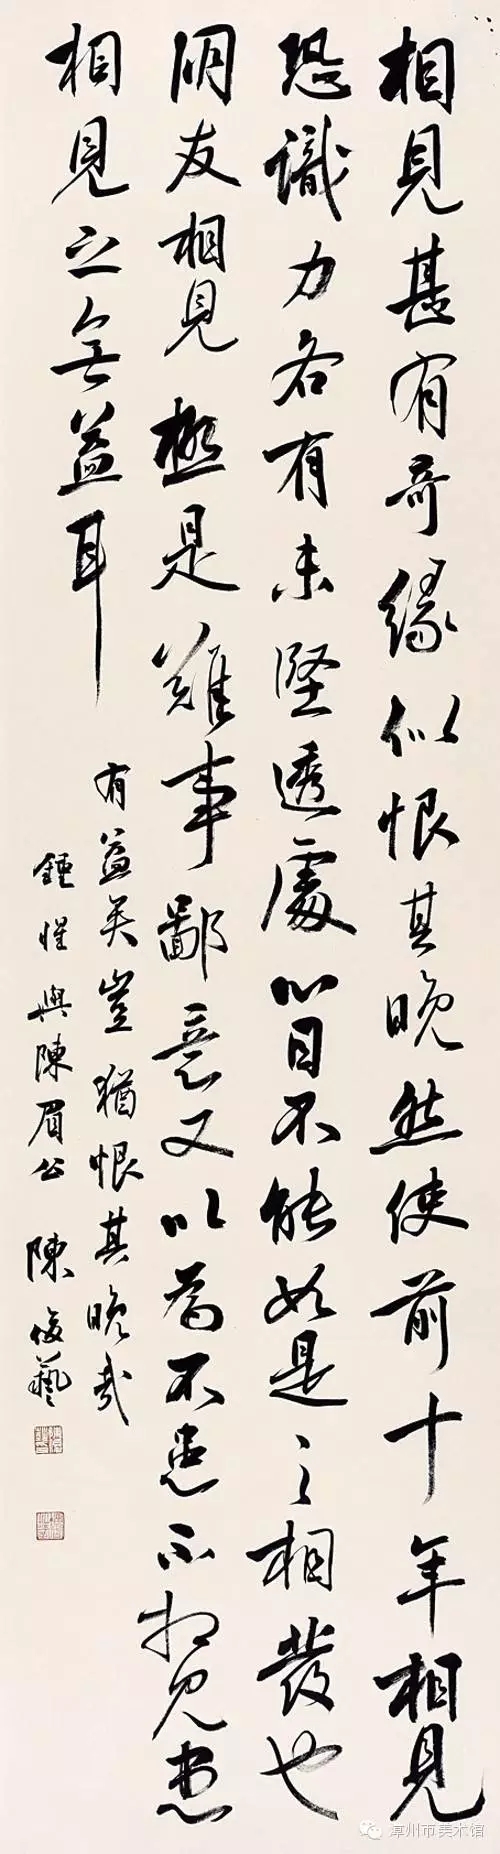 相見甚有奇緣似恨其晚然使前十年相見
恐識力各有未堅透處心目不能如是之相發也
朋友相見極是難事鄙意又以為不患不相見患
相見之無益耳
有益矣豈猶恨其晚哉
鍾惺與陳眉公 陳俊藝
漳州市美术馆